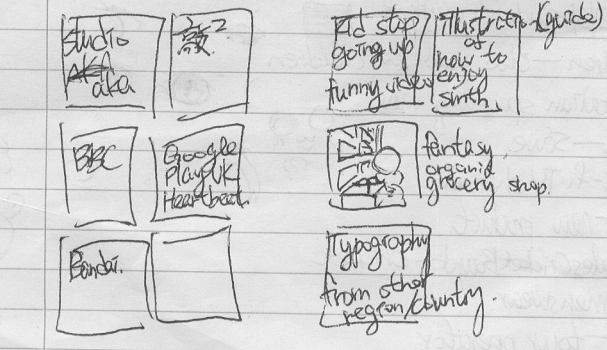 Studio
aka
BBC
Google
Play UK
Heartbeat.
Bandai.
Kid stop
going up
funny video
illustration (guide)
of
how to
enjoy
sinth.
fantasy.
organic
grocery shop.
Typography
from other
region/country.